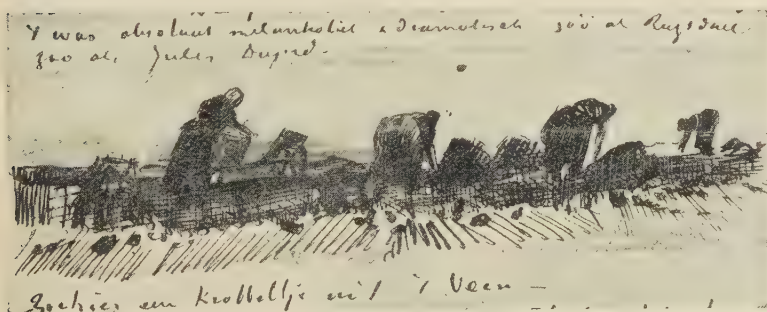 't was absoluut melankoliek & dramatisch zóó als Ruysdael.
zoo als Jules Dupré.
Ziehier een krabbeltje uit 't Veen —